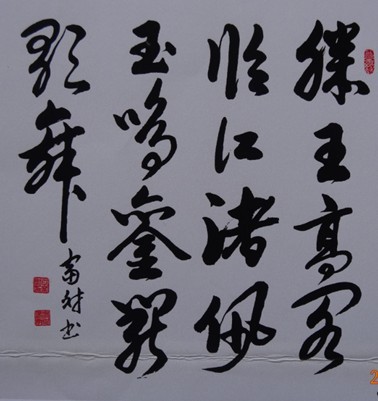 滕王高阁
临江渚佩
玉鸣銮罢
歌舞
富书